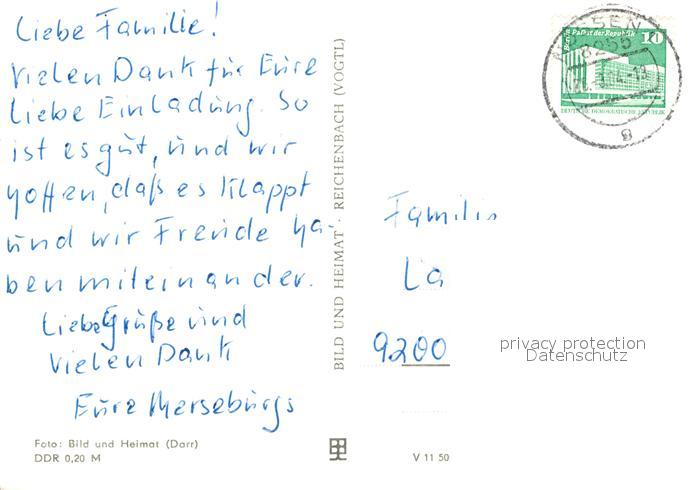 Liebe Familie!
Vielen Dank für Eure
liebe Einladung. So
ist es gut, und wir
hoffen, daß es klappt
und wir Freude ha-
ben miteinander.
Liebe Grüße und
Vielen Dank
Eure Merseburgs
Foto: Bild und Heimat (Darr)
DDR 0,20 M
BILD UND HEIMAT · REICHENBACH (VOGTL)
V 11 50
Berlin Palast der Republik
10
DEUTSCHE DEMOKRATISCHE REPUBLIK
NOSSEN
8255
g
Familie
La
9200
privacy protection
Datenschutz